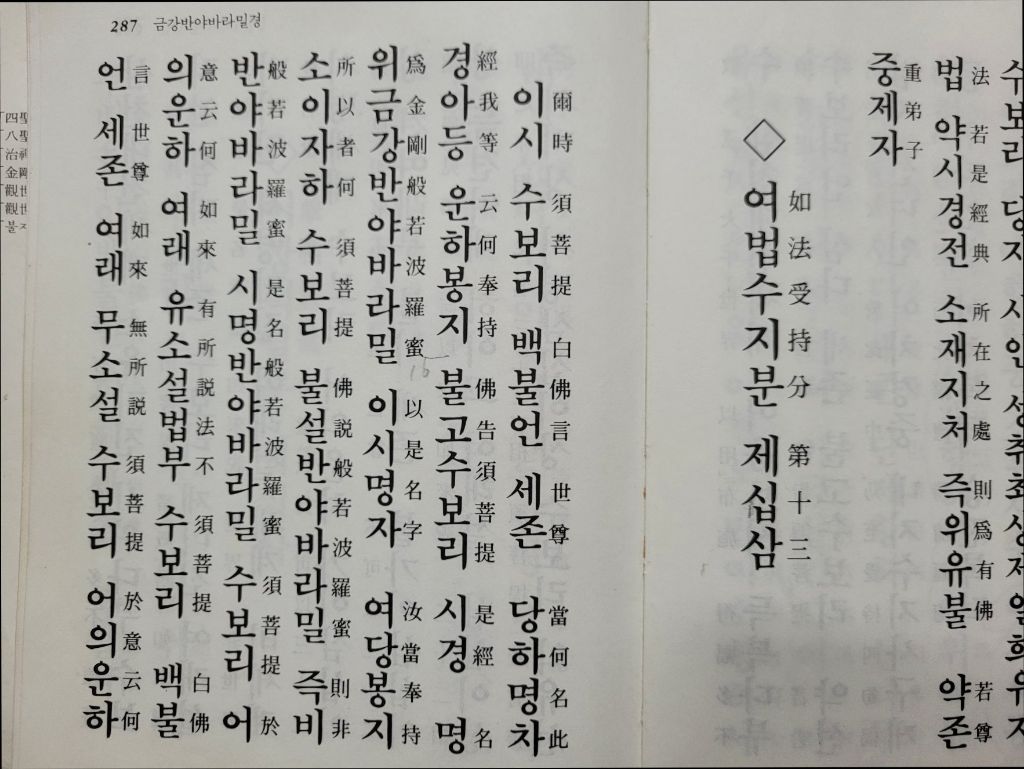 287 금강반야바라밀경
수보리 당지 시인 성취최상제일희유지
법 약시경전 소재지처 즉위유불 약존
法 若是經典 所在之處 則爲有佛 若尊
중제자
重弟子
◇ 여법수지분 제십삼
如法受持分 第十三
이시 수보리 백불언 세존 당하명차
爾時 須菩提 白佛言 世尊 當何名此
경아등 운하봉지 불고수보리 시경 명
經我等 云何奉持 佛告須菩提 是經 名
위금강반야바라밀 이시명자 여당봉지
爲金剛般若波羅蜜 以是名字 汝當奉持
16
소이자하 수보리 불설반야바라밀 즉비
所以者何 須菩提 佛説般若波羅蜜 則非
반야바라밀 시명반야바라밀 수보리 어
般若波羅蜜 是名般若波羅蜜 須菩提 於
의운하 여래 유소설법부 수보리 백불
意云何 如來 有所説法不 須菩提 白佛
언 세존 여래 무소설 수보리 어의운하
言 世尊 如來 無所説 須菩提 於意云何
四八治金觀觀불